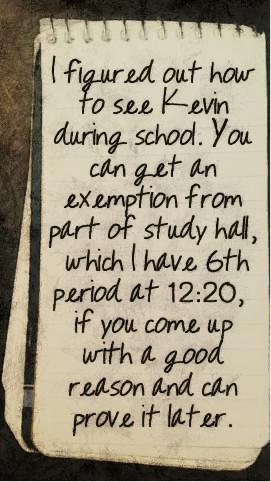 I figured out how
to see Kevin
during school. You
can get an
exemption from
part of study hall,
which I have 6th
period at 12:20,
if you come up
with a good
reason and can
prove it later.